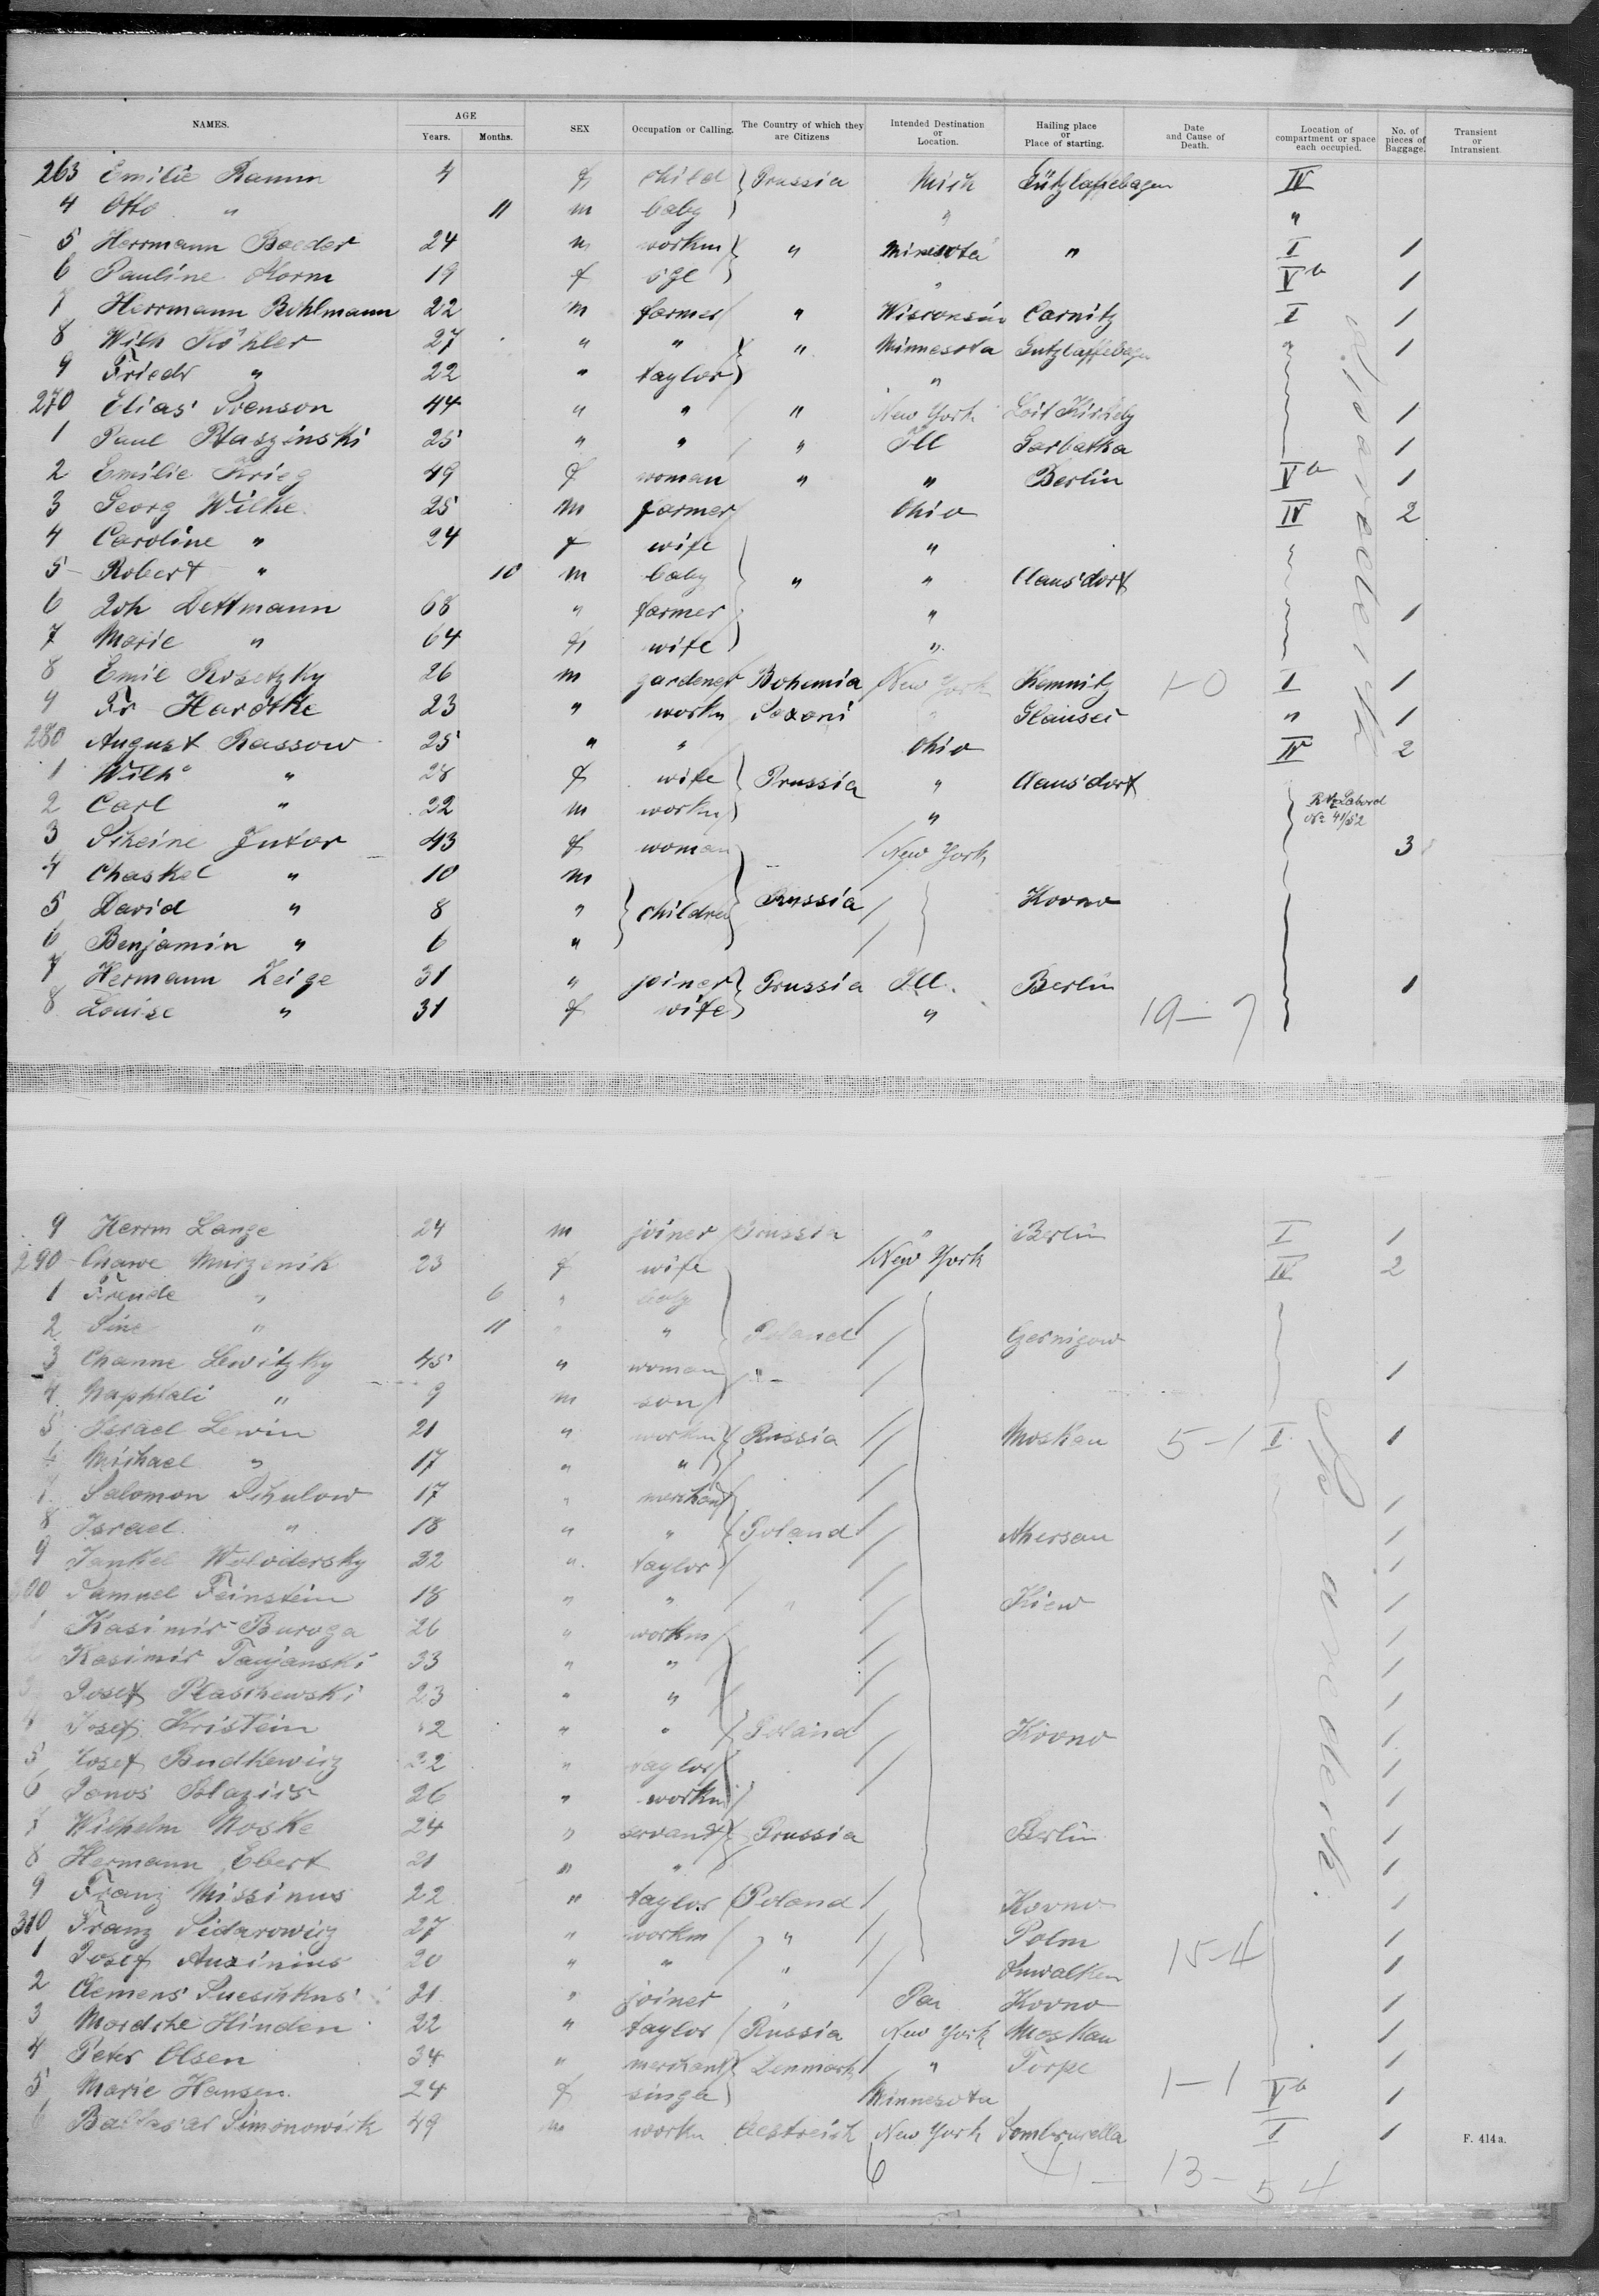 NAMES. AGE Years. Months. SEX Occupation or Calling. The Country of which they are Citizens Intended Destination or Location. Hailing place or Place of starting. Date and Cause of Death. Location of compartment or space each occupied. No. of pieces of Baggage. Transient or Intransient.
263 Emilie Ramm 4 f child Prussia Mich IV
4 Otto " 11 m baby " "
5 Herrmann Boeder 24 m workm " Minesota " I 1
6 Pauline Korm 19 f sgl " Vb 1
7 Herrmann Bohlmann 22 m farmer " Wisconsin Carnitz I 1
8 Wilh Köhler 27 " " " Minnesota " 1
9 Friedr " 22 " taylor "
270 Elias Svenson 44 " " " New York Loit Kirkeby 1
1 Paul 25 " " " Ill Garbatka 1
2 Emilie Krieg 49 f woman " " Berlin Vb 1
3 Georg Wilke 25 m farmer Ohio IV 2
4 Caroline " 24 f wife "
5 Robert " 10 m baby " " Clausdorf
6 Joh Dettmann 68 " farmer " 1
7 Marie " 64 f wife "
8 Emil Rosetzky 26 m gardener Bohemia New York Kemnitz 1-0 I 1
9 Fr Hardtke 23 " workm Saxoni " " 1
280 August Rassow 25 " " Ohio IV 2
1 Wilh " 28 f wife Prussia " Clausdorf
2 Carl " 22 m workm "
3 Scheine Jutor 43 f woman New York 3
4 Chaskel " 10 m
5 David " 8 " children Russia Kovno
6 Benjamin " 6 "
7 Hermann Zeige 31 " joiner Prussia Ill. Berlin 1
8 Louise " 31 f wife " 19-7
9 Herrm Lange 24 m joiner Prussia " Berlin I 1
290 Chawe Murzenik 23 f wife New York IV 2
1 Freude " 6 " baby
2 Sine " 11 " " Poland Gernigow
3 Channe Lewitzky 45 " woman " 1
4 Naphtali " 9 m son
5 Israel Lewin 21 " workm Russia Moskau 5-1 I 1
6 Michael " 17 " "
7 Salomon Schulow 17 " merchant 1
8 Israel " 18 " " Poland Chersau 1
9 Jankel Wolodersky 32 " taylor 1
300 Samuel Feinstein 18 " " " Kiew 1
1 Kasimir Buroga 26 " workm 1
2 Kasimir Tanjanski 33 " " 1
3 Josef Plaschewski 23 " " 1
4 Josef Kristein " " Poland Kovno 1
5 Josef Budkewicz 22 " taylor 1
6 Janos Blazius 26 " workm 1
7 Wilhelm Noske 24 " servant Prussia Berlin 1
8 Hermann Ebert 21 " " 1
9 Franz Missinus 22 " taylor Poland Kovno 1
310 Franz Sidarowicz 27 " workm " Polm 1
1 Josef Auzinius 20 " " " Suwalken 15-4 1
2 Clemens 21 " joiner " Pa Kovno 1
3 Mordche Hinden 22 " taylor Russia New York Moskau 1
4 Peter Olsen 34 " merchant Denmark " Torpe 1
5 Marie Hansen 24 f singl Minnesota 1-1 Vb 1
6 Baltasar Simonowich 49 m workm Oestreich New York I 1
F. 414a.
13-54